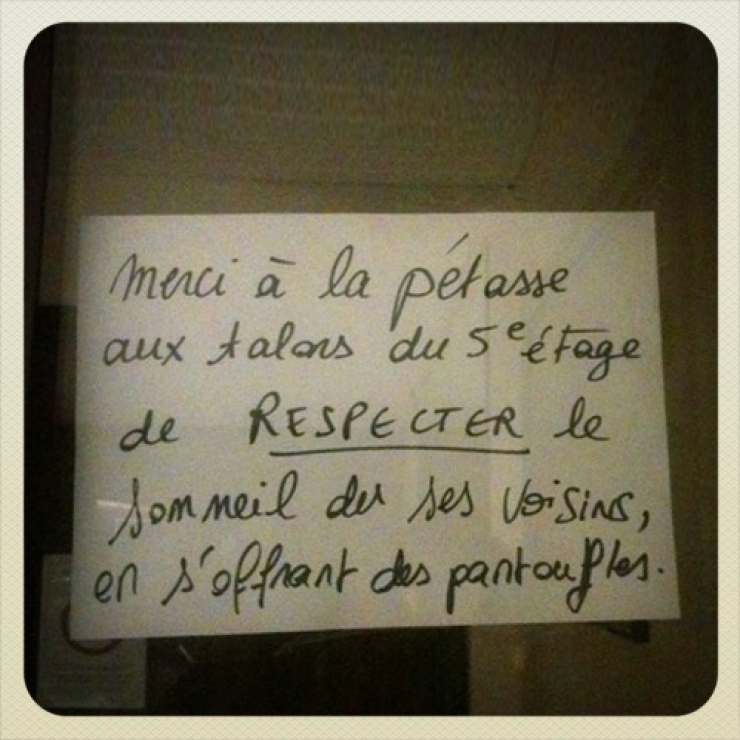 Merci à la pétasse
aux talons du 5e étage
de RESPECTER le
sommeil des ses voisins,
en s'offrant des pantouffles.